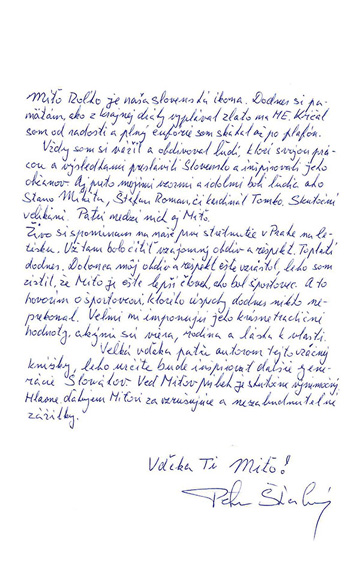 Mišo Rolko je naša slovenská ikona. Dodnes si pa-
mätám, ako z krajnej dráhy vyplával zlato na ME. Kričal
som od radosti a plný eufórie som skákal až po plafón.
Vždy som si vážil a obdivoval ľudí, ktorí svojou prá-
cou a výsledkami preslávili Slovensko a inšpirovali jeho
občanov. Aj preto mojimi vzormi a idolmi boli ľudia ako
Stano Mikita, Štefan Roman, či kardinál Tomko. Skutoční
velikáni. Patrí medzi nich aj Mišo.
Živo si spomínam na naše prvé stretnutie v Prahe na le-
tisku. Už tam bolo cítiť vzájomný obdiv a rešpekt. To platí
dodnes. Dokonca môj obdiv a rešpekt ešte vzrástol, keď som
zistil, že Mišo je ešte lepší človek, ako bol športovec. A to
hovorím o športovcovi, ktorého úspechy dodnes nikto ne-
prekonal. Veľmi mi imponujú jeho kresťanské tradičné
hodnoty, akými sú viera, rodina a láska k vlasti.
Veľká vďaka patrí autorom tejto vzácnej
knižky, ktorá určite bude inšpirovať ďalšie gene-
rácie Slovákov. Veď Mišov príbeh je skutočne výnimočný.
Hlavne ďakujem Mišovi za vzrušujúce a nezabudnuteľné
zážitky.
Vďaka Ti Mišo!